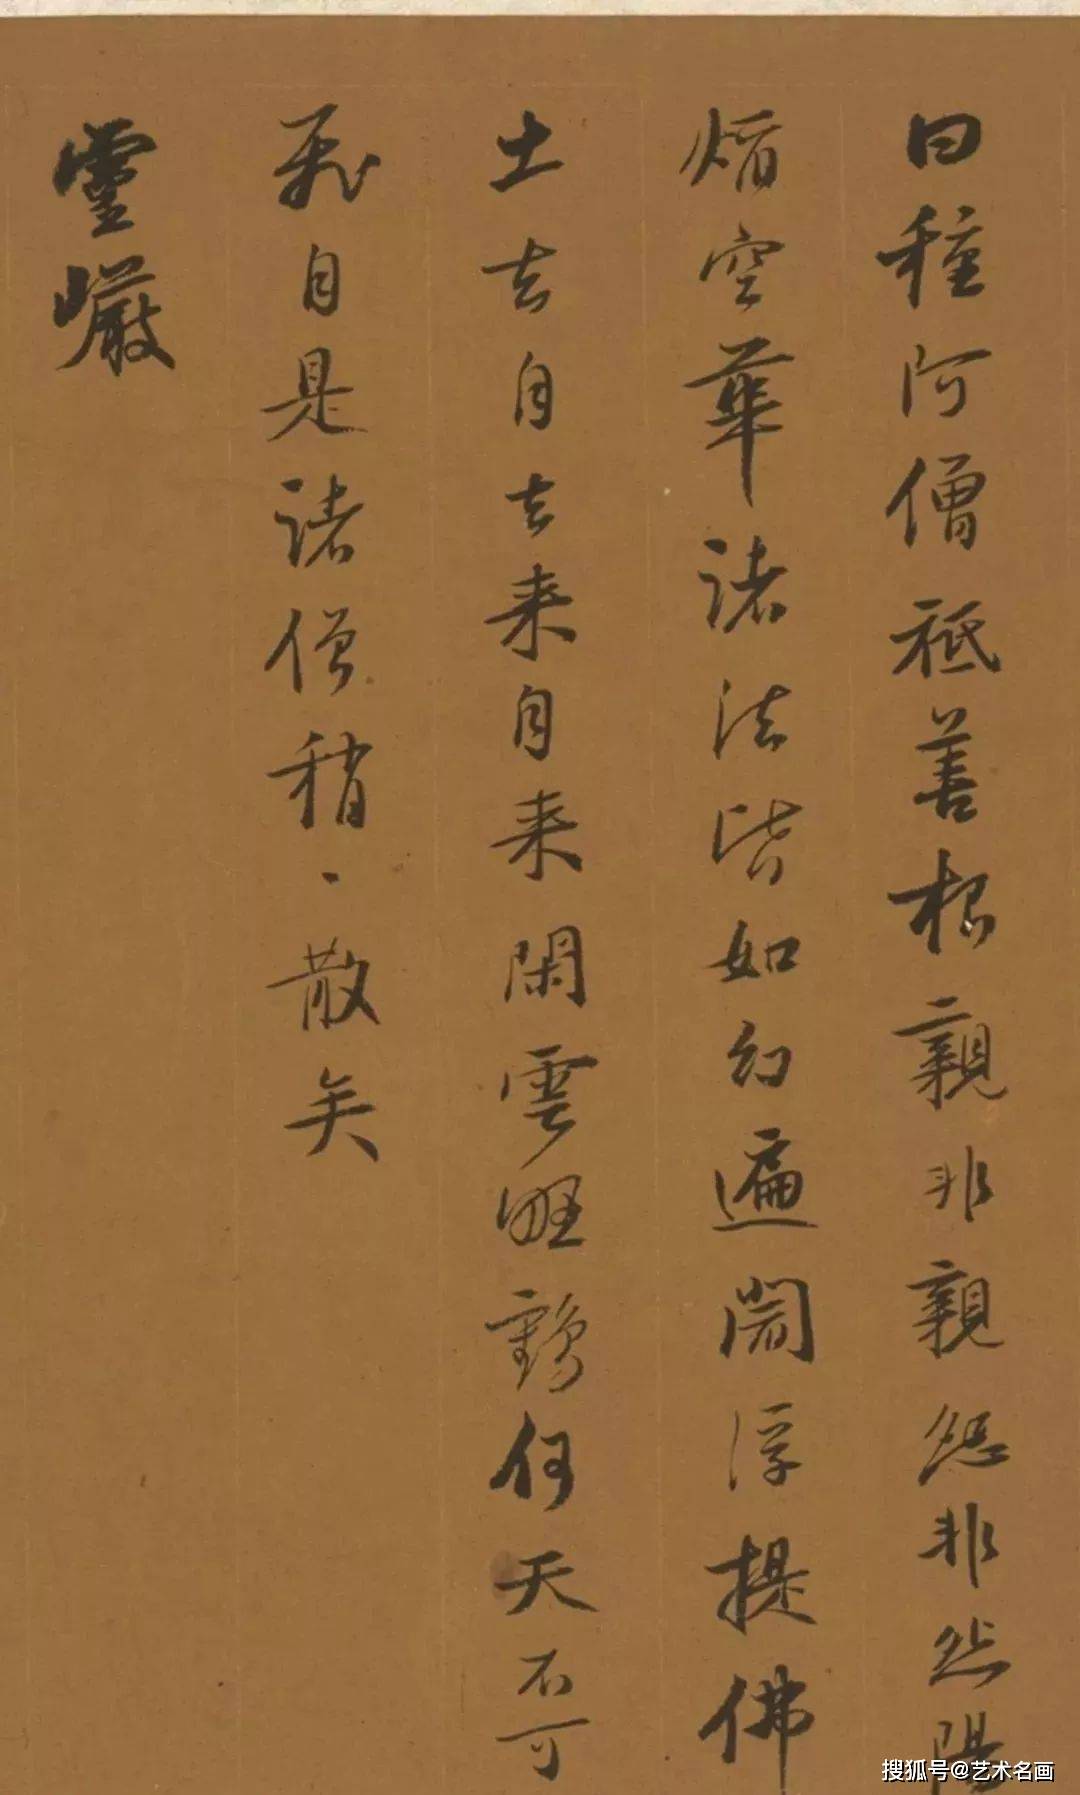 曰種阿僧祇善根親非親怨非怨陽
焰空華諸法皆如幻遍閻浮提佛
土去自去來自來閑雲野鶴何天不可
飛自是諸僧稍丶散矣
靈巖
搜狐号@艺术名画